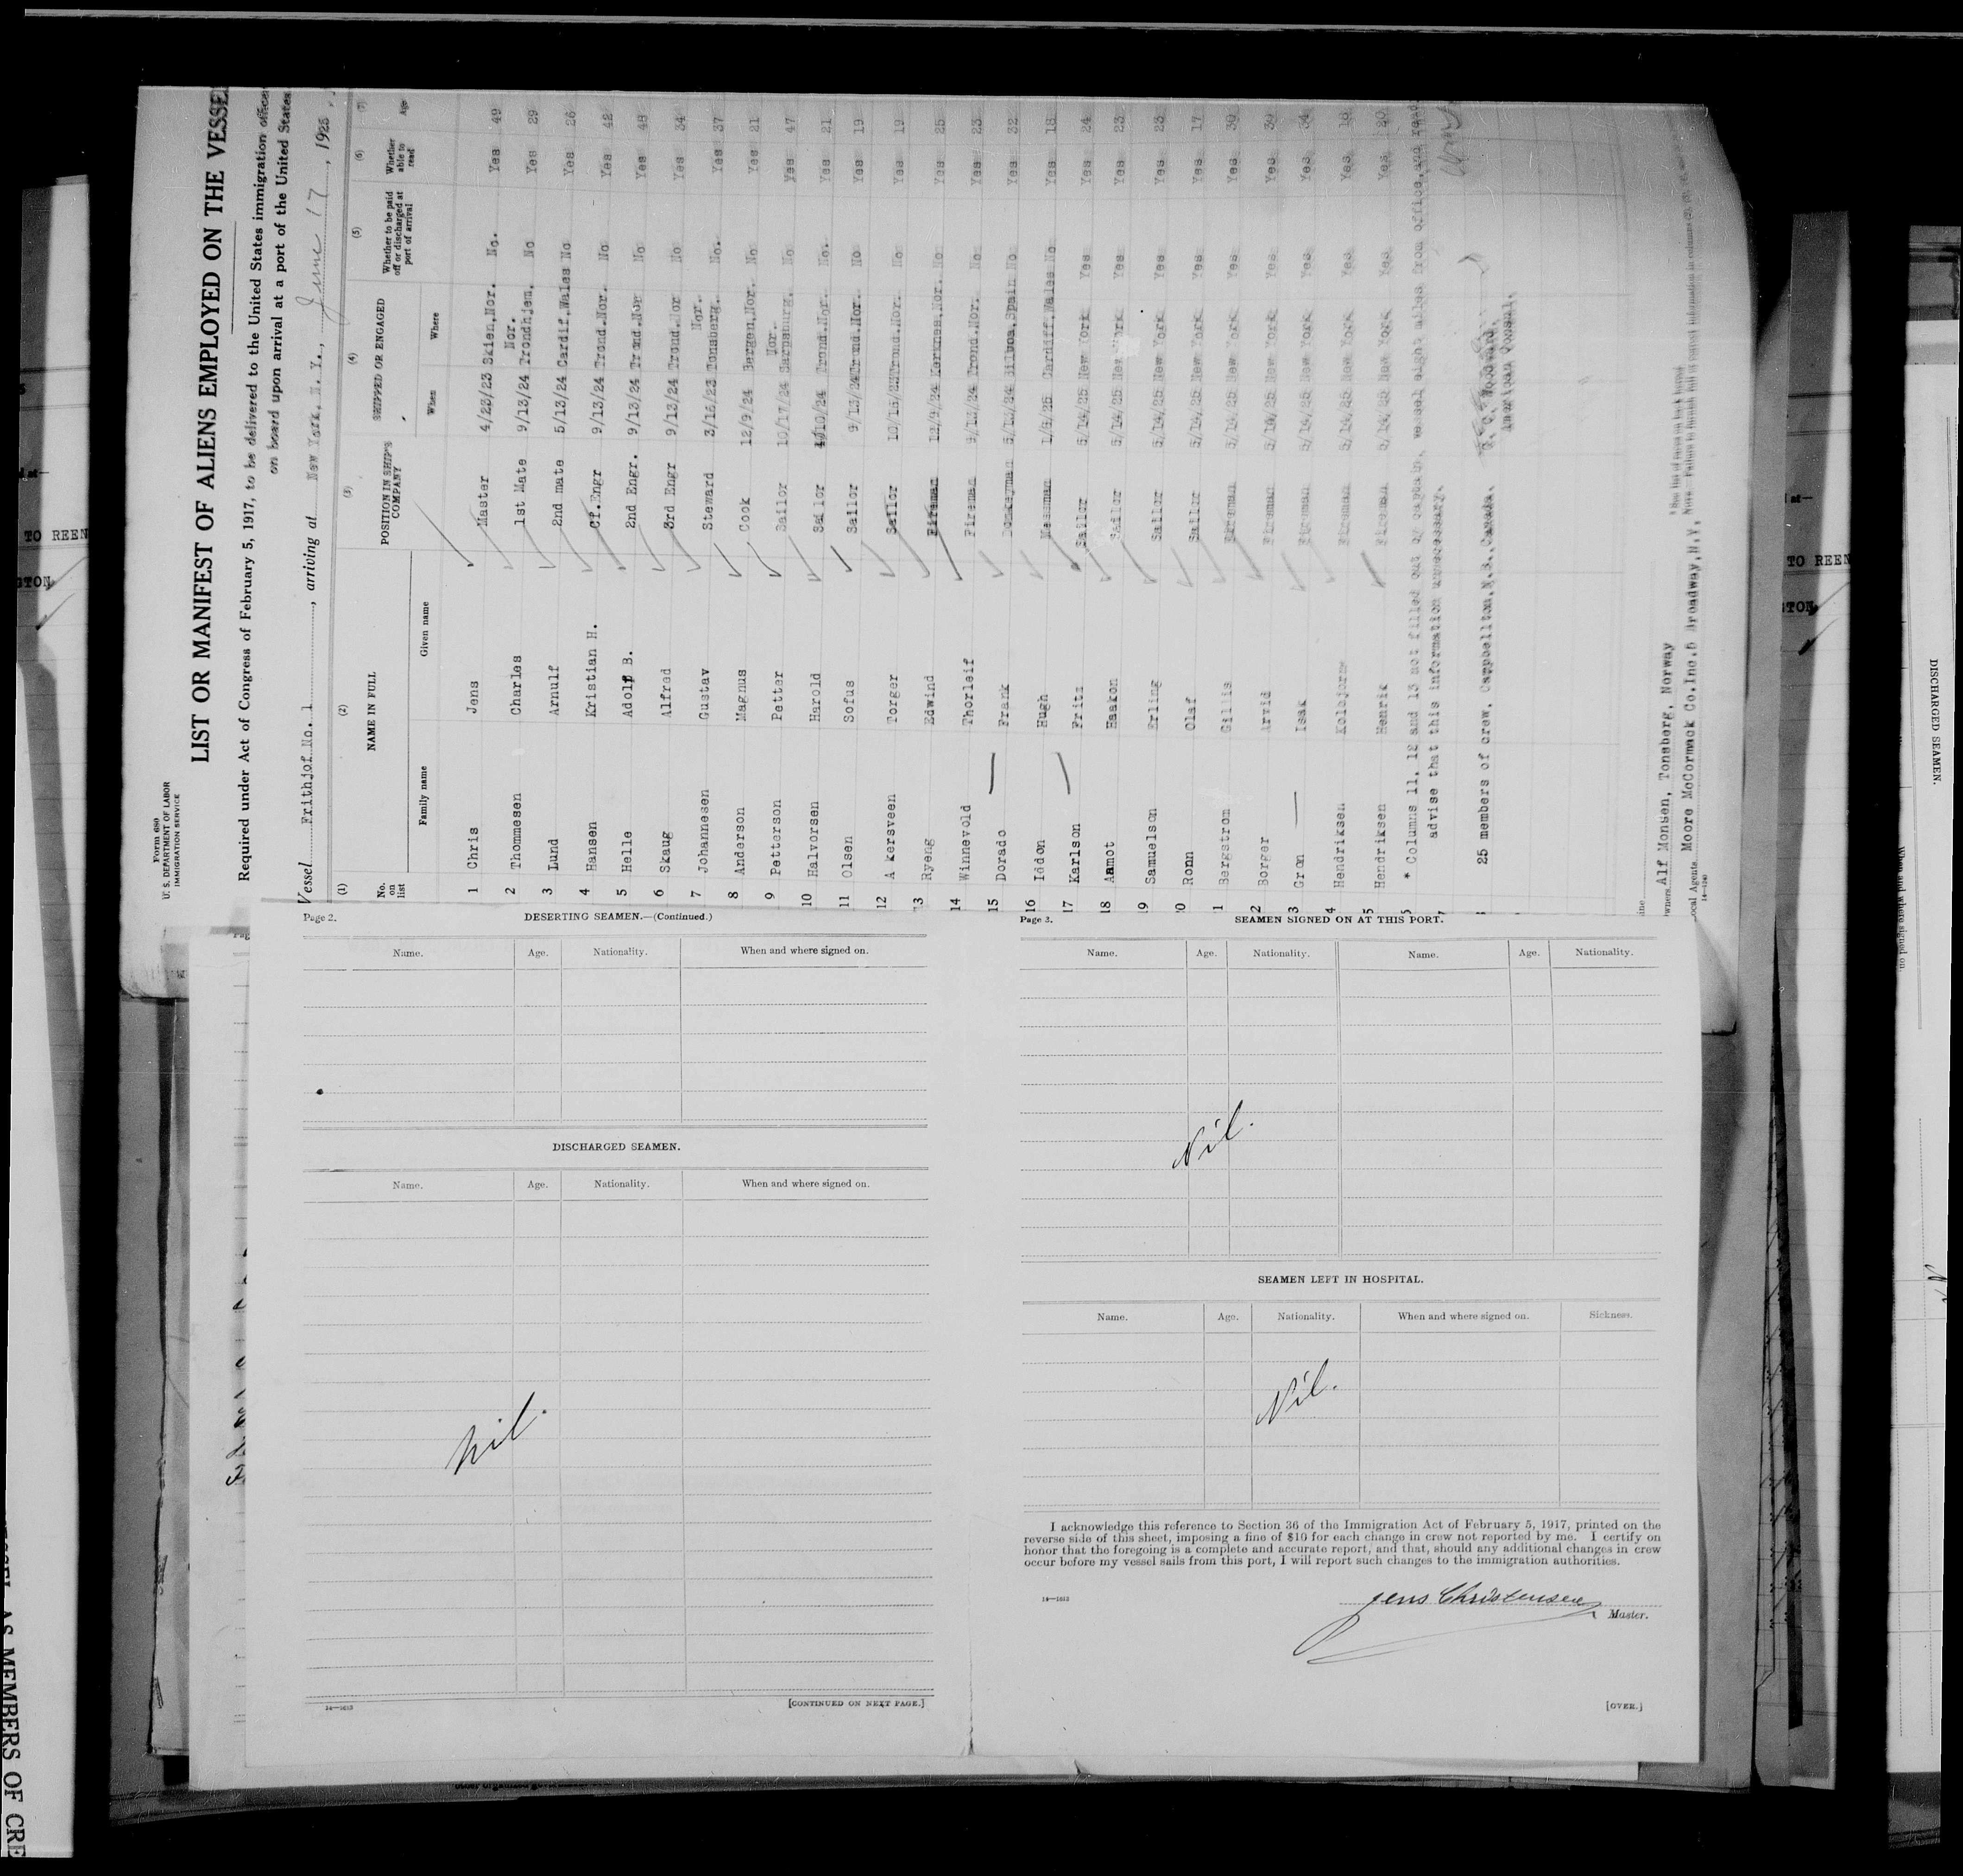 Form 680
U. S. DEPARTMENT OF LABOR
IMMIGRATION SERVICE
LIST OR MANIFEST OF ALIENS EMPLOYED ON THE VESSEL
Required under Act of Congress of February 5, 1917, to be delivered to the United States immigration officer
on board upon arrival at a port of the United States
Vessel Frithjof No. 1, arriving at New York, N. Y., June 17, 1925
(1) (2) (3) (4) (5) (6) (7)
No. on list NAME IN FULL POSITION IN SHIP'S COMPANY SHIPPED OR ENGAGED Whether to be paid off or discharged at port of arrival Whether able to read Age
Family name Given name When Where
1 Chris Jens Master 4/23/23 Skien,Nor. No. Yes 49
2 Thommesen Charles 1st Mate 9/13/24 Trondhjem, Nor. No Yes 29
3 Lund Arnulf 2nd mate 5/13/24 Cardif,Wales No Yes 26
4 Hansen Kristian H. Cf.Engr 9/13/24 Trond.Nor. No Yes 42
5 Helle Adolf B. 2nd Engr. 9/13/24 Trond.Nor No Yes 48
6 Skaug Alfred 3rd Engr 9/13/24 Trond.Nor No Yes 34
7 Johannesen Gustav Steward 3/16/23 Tonsberg. Nor. No. Yes 37
8 Anderson Magnus Cook 12/9/24 Bergen,Nor. No Yes 21
9 Petterson Petter Sailor 10/17/24 Sarpsburg. Nor. No Yes 47
10 Halvorsen Harold Sailor 10/24 Trond.Nor. No. Yes 21
11 Olsen Sofus Sailor 9/13/24 Trond.Nor. No Yes 19
12 A kersveen Torger Sailor Trond.Nor. No Yes 19
13 Ryeng Edwind Fireman 12/9/24 Nor. No Yes 25
14 Winnevold Thorleif Fireman 9/13/24 Trond.Nor. No Yes 23
15 Dorado Frank Donkeyman 5/13/24 Bilboa.Spain No Yes 32
16 Iddon Hugh Messman 1/5/25 Cardiff.Wales No Yes 18
17 Karlson Fritz Sailor 5/14/25 New York Yes Yes 24
18 Aamot Haakon Sailor 5/14/25 New York Yes Yes 23
19 Samuelson Erling Sailor 5/14/25 New York Yes Yes 23
20 Ronn Olaf Sailor 5/14/25 New York Yes Yes 17
1 Bergstrom Gillis Fireman 5/14/25 New York Yes Yes 30
2 Borger Arvid Fireman 5/14/25 New York Yes Yes 30
3 Gron Isak Fireman 5/14/25 New York Yes Yes 34
4 Hendriksen Kolbjorn Fireman 5/14/25 New York Yes Yes 18
5 Hendriksen Henrik Fireman 5/14/25 New York Yes Yes 20
* Columns 11, 12 and 13 not filled out by captain, vessel eight miles from office,and
advise that this information unnecessary.
25 members of crew, Campbellton,N.B.,Canada.
G. C. Woodward,
American Consul.
Owners Alf Monsen, Tonsberg, Norway
Local Agents Moore McCormack Co.Inc.5 Broadway,N.Y.
Page 2.
DESERTING SEAMEN.—(Continued.)
Name. Age. Nationality. When and where signed on.
DISCHARGED SEAMEN.
Name. Age. Nationality. When and where signed on.
Nil.
14—1613
[CONTINUED ON NEXT PAGE.]
Page 3.
SEAMEN SIGNED ON AT THIS PORT.
Name. Age. Nationality. Name. Age. Nationality.
Nil.
SEAMEN LEFT IN HOSPITAL.
Name. Age. Nationality. When and where signed on. Sickness.
Nil.
I acknowledge this reference to Section 36 of the Immigration Act of February 5, 1917, printed on the
reverse side of this sheet, imposing a fine of $10 for each change in crew not reported by me. I certify on
honor that the foregoing is a complete and accurate report, and that, should any additional changes in crew
occur before my vessel sails from this port, I will report such changes to the immigration authorities.
14—1613
Jens Christensen
Master.
[OVER.]
TO REEN
TO REEN
DISCHARGED SEAMEN.
When and where signed on.
AS MEMBERS OF CRE